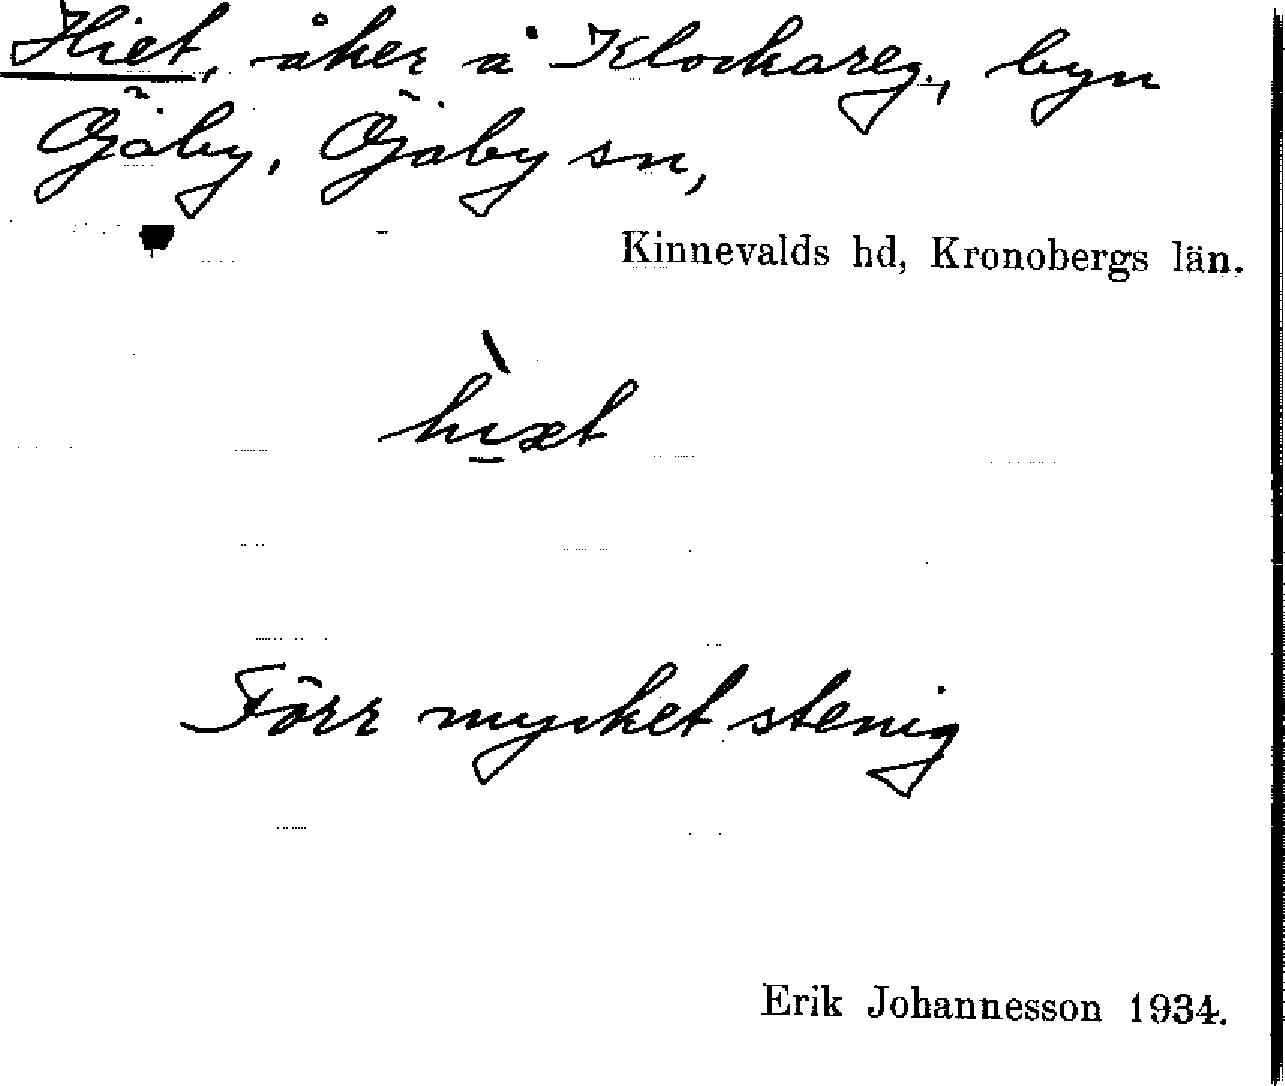 Hiet, åker å Klockareg., byn
Öjaby, Öjaby sn,
Kinnevalds hd, Kronobergs län.
hì̱æt
Förr mycket stenig
Erik Johannesson 1934.